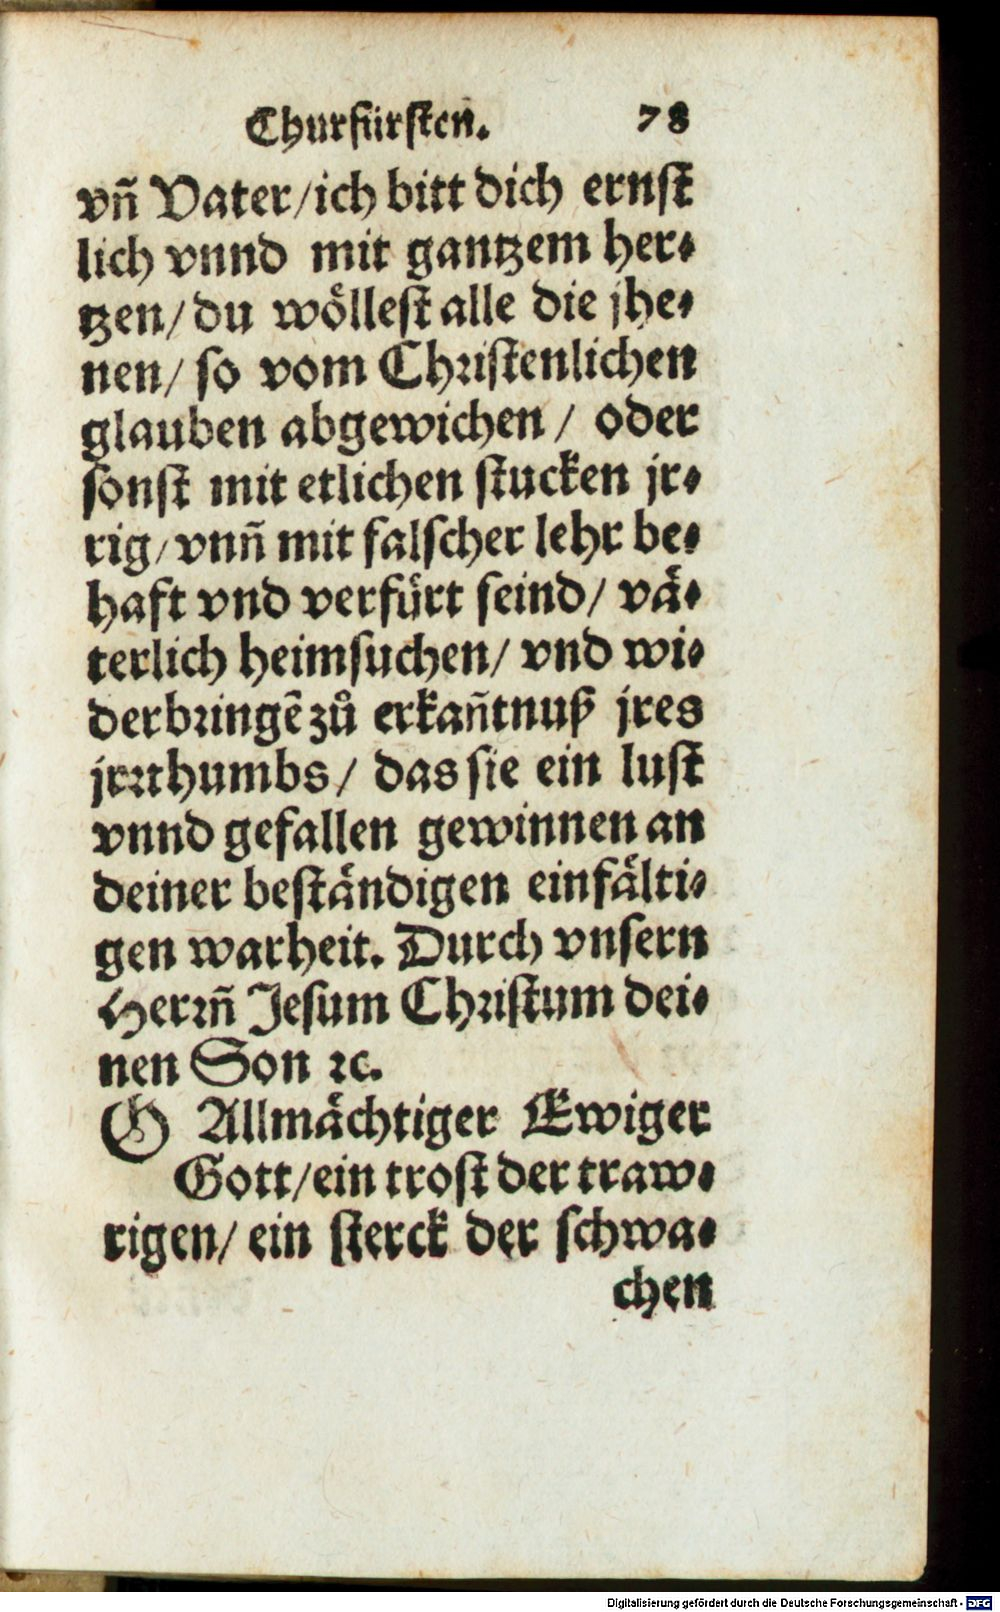 Churfürsten. 78
vñ Vater/ich bitt dich ernst
lich vnnd mit gantzem her⸗
tzen/du wöllest alle die jhe⸗
nen/ so vom Christenlichen
glauben abgewichen / oder
sonst mit etlichen stucken jr⸗
rig/vnñ mit falscher lehr be⸗
haft vnd verfürt seind/ vä⸗
terlich heimsuchen/ vnd wi⸗
derbringẽ zů erkañtnuß jres
jrrthumbs/ das sie ein lust
vnnd gefallen gewinnen an
deiner beständigen einfälti⸗
gen warheit. Durch vnsern
Herrñ Jesum Christum dei⸗
nen Son ꝛc.
O Allmächtiger Ewiger
Gott/ein trost der traw⸗
rigen/ ein sterck der schwa⸗
chen
Digitalisierung gefördert durch die Deutsche Forschungsgemeinschaft - DFG